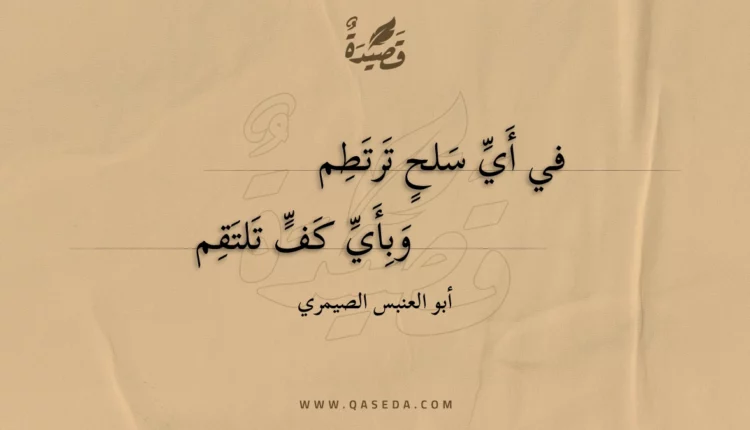 قَصِيدَةٌ
في أَيِّ سَلحٍ تَرتَطِم
وَبِأَيِّ كَفٍّ تَلتَقِم
أبو العنبس الصيمري
WWW.QASEDA.COM